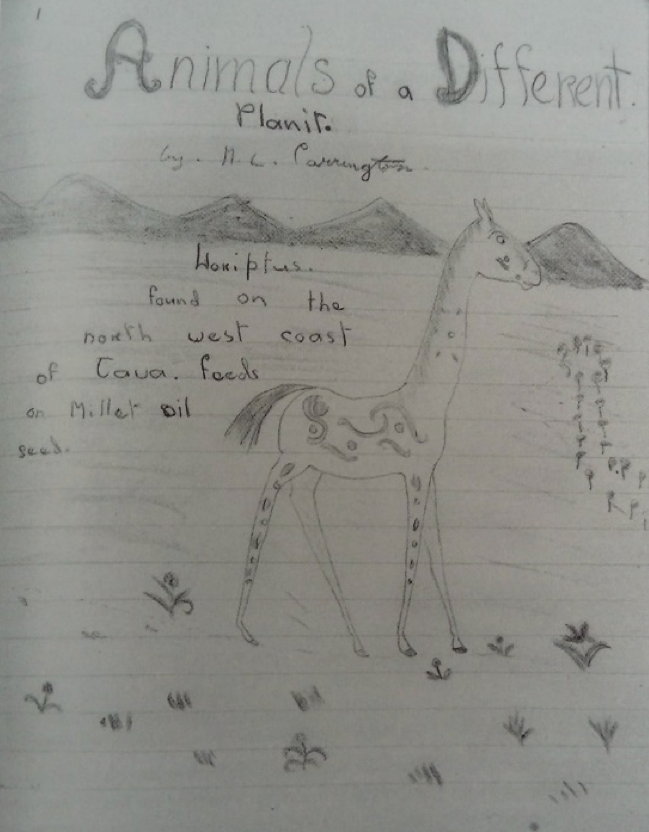 1
Animals of a Different.
Planit.
by. M. L. Carrington.
found on the
north west coast
of Cava. feeds
on Millet oil
seed.